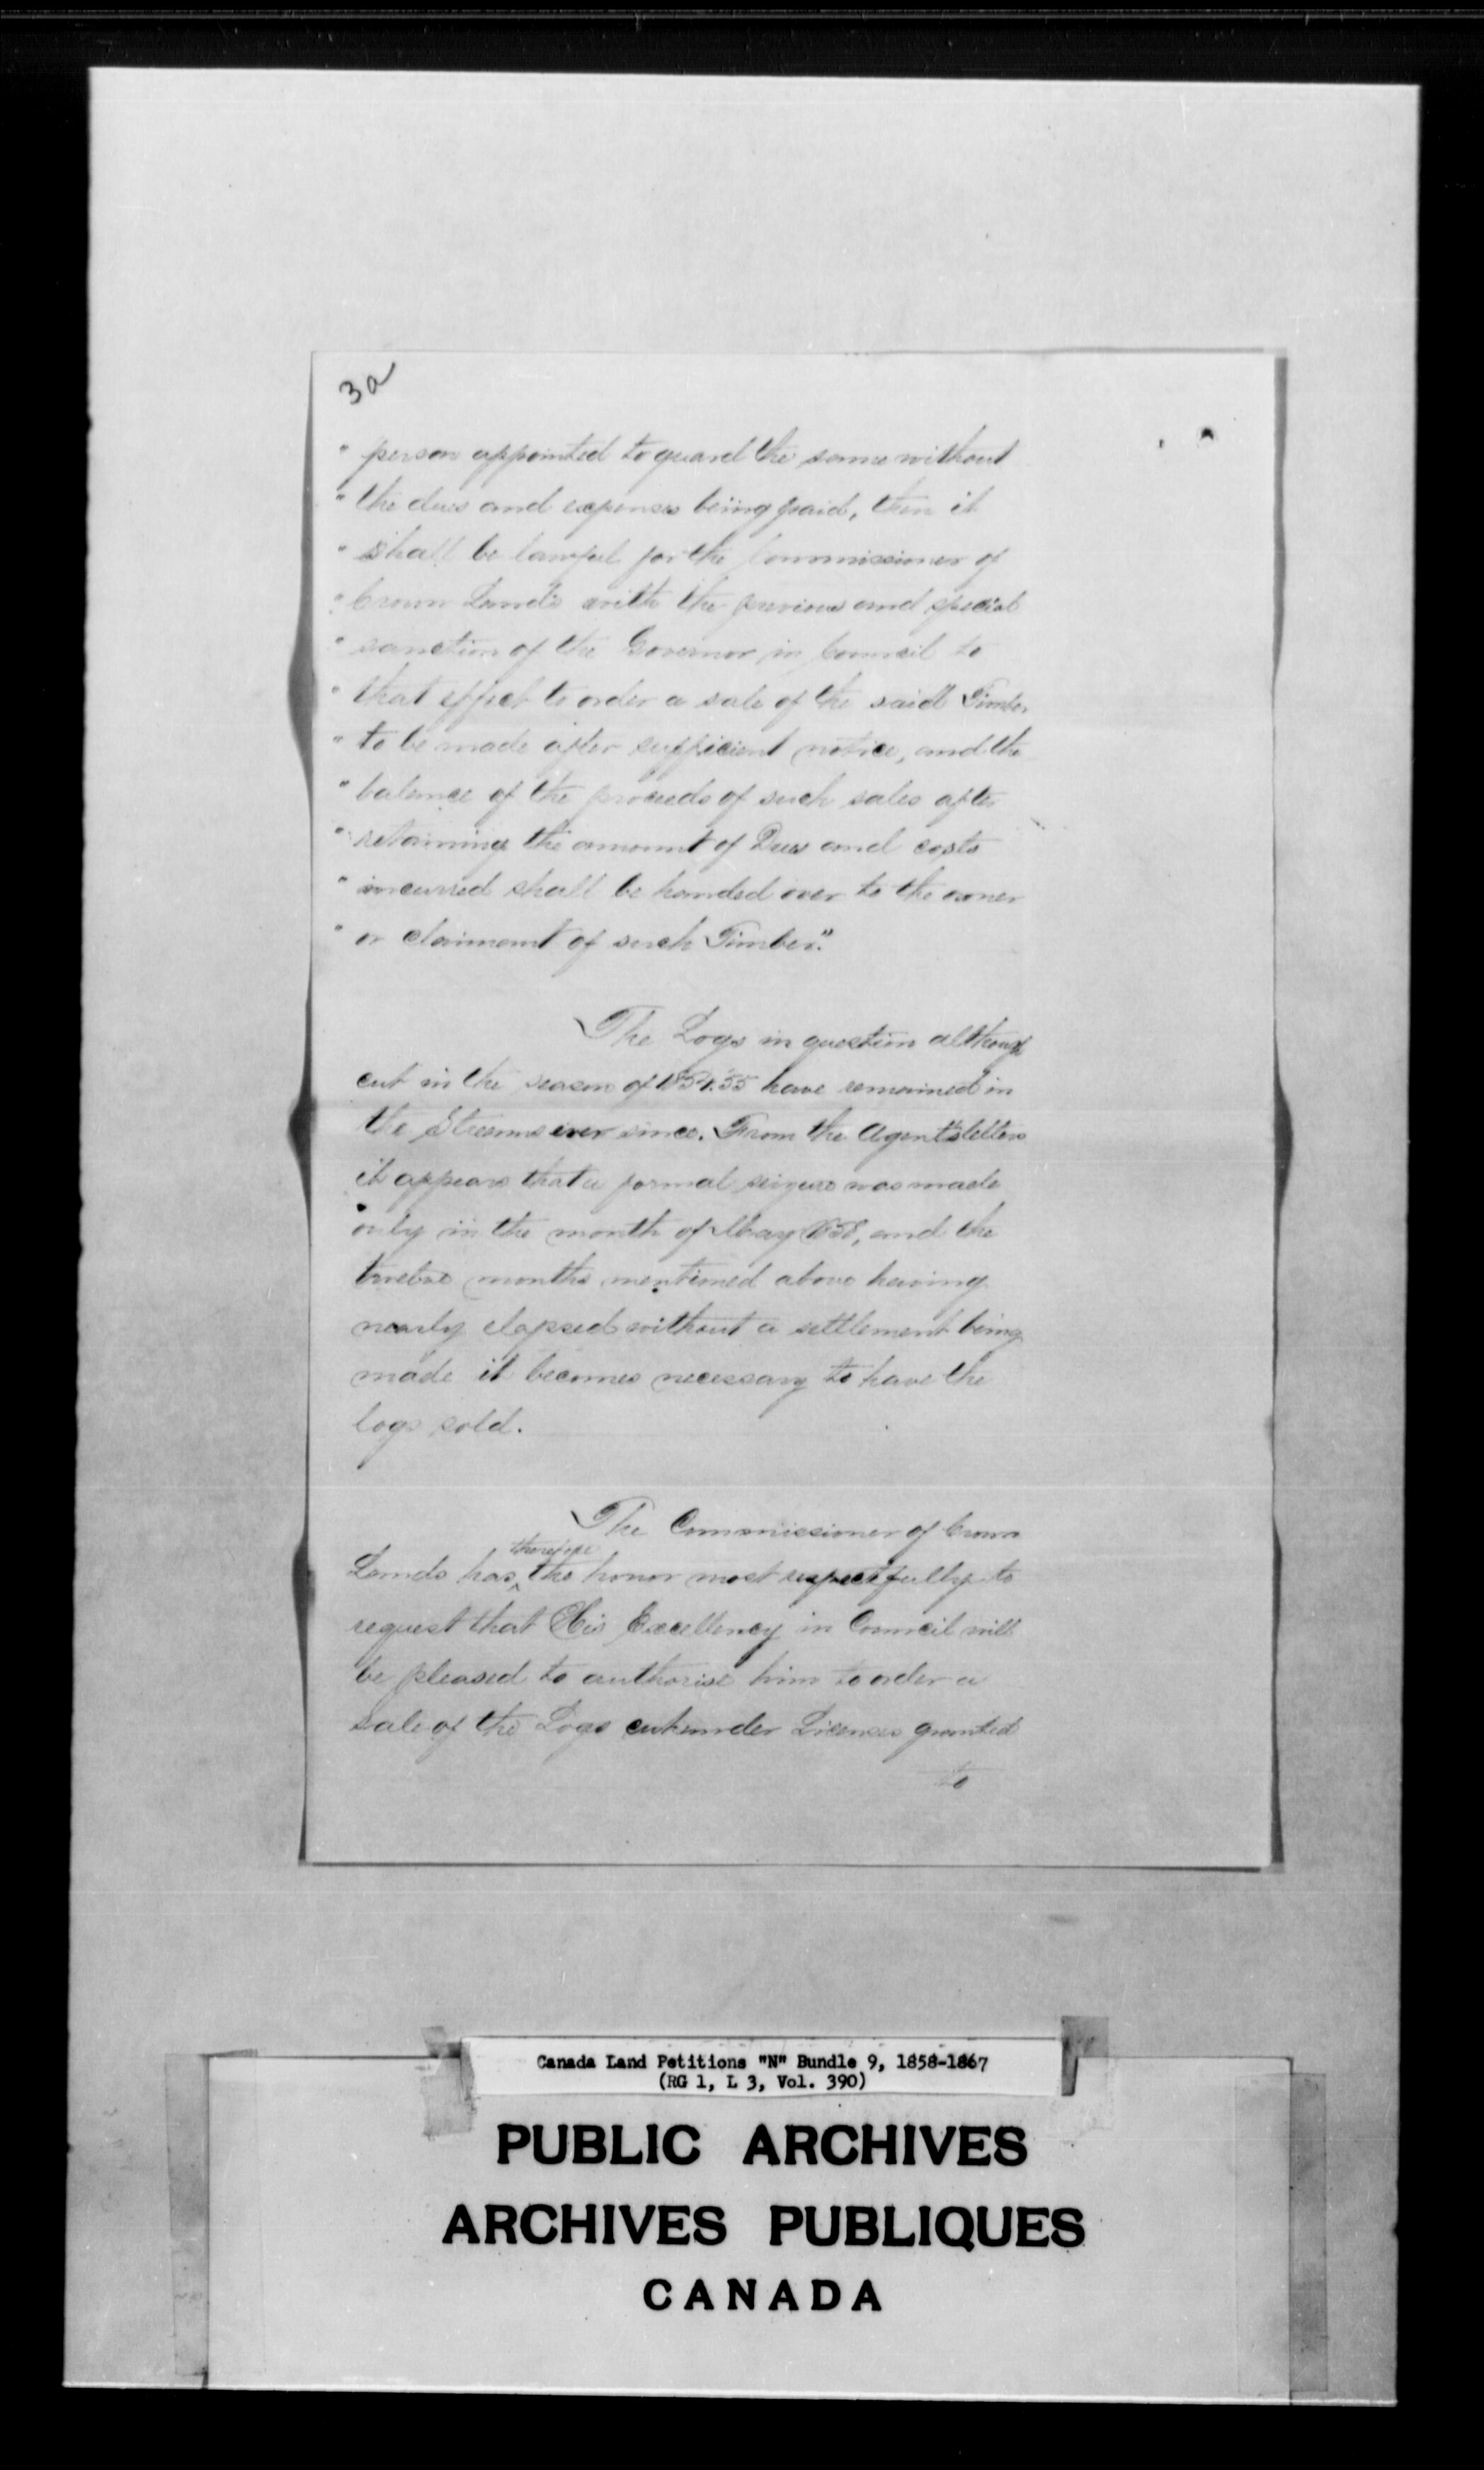 3a
" person appointed to guard the same without
" the dues and expenses being paid, then it
" shall be lawful for the Commissioner of
" Crown Lands with the previous and special
" sanction of the Governor in Council to
" that effect to order a sale of the said Timber
" to be made after sufficient notice, and the
" balance of the proceeds of such sales after
" retaining the amount of Dues and costs
" incurred shall be handed over to the owner
" or claimant of such Timber."
The Logs in question although
cut in the season of 1854.55 have remained in
the Streams ever since. From the Agent's letters
it appears that a formal seizure was made
only in the month of May 1858, and the
twelve months mentioned above having
nearly elapsed without a settlement being
made it becomes necessary to have the
logs sold.
The Commissioner of Crown
Lands has therefore the honor most respectfully to
request that His Excellency in Council will
be pleased to authorise him to order a
sale of the Logs cut under Licenses granted
to
Canada Land Petitions "N" Bundle 9, 1858-1867
(RG 1, L 3, Vol. 390)
PUBLIC ARCHIVES
ARCHIVES PUBLIQUES
CANADA